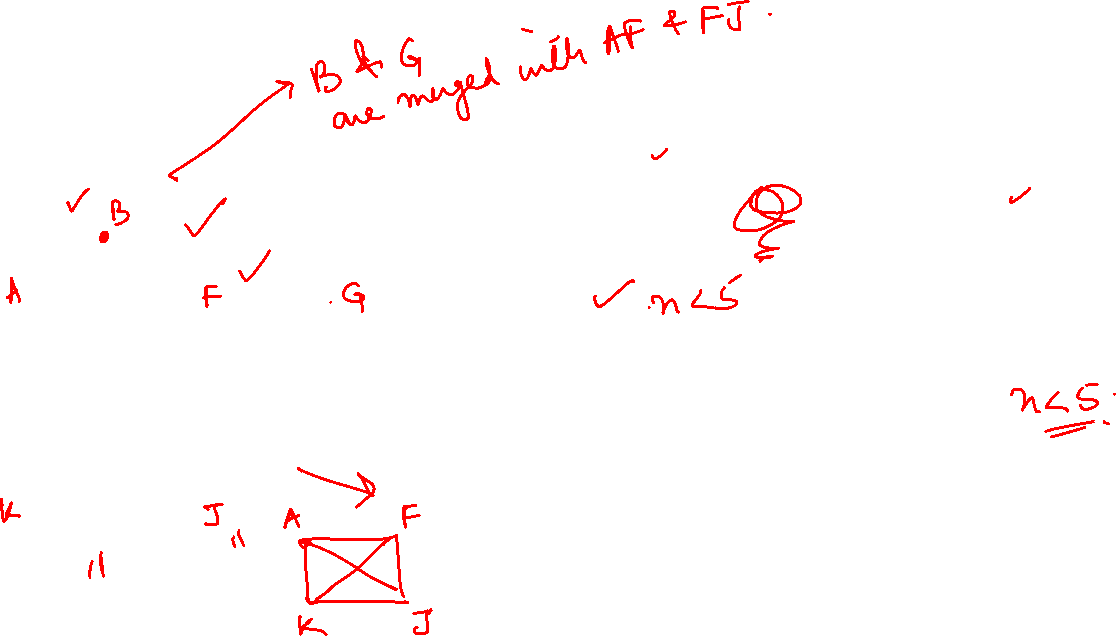 B & G
are merged with AF & FJ.
B
A F .G n<5
n<5.
K J,, A F
K J